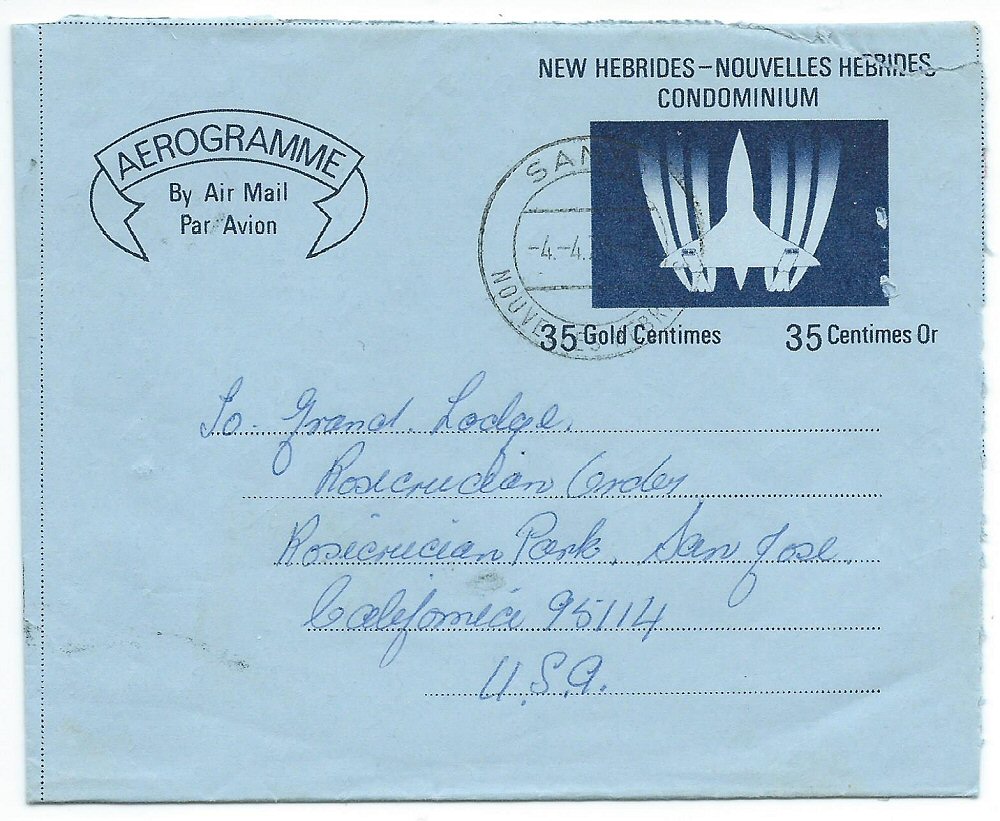 NEW HEBRIDES–NOUVELLES HEBRIDES
CONDOMINIUM
AEROGRAMME
By Air Mail
Par Avion
-4.-4.
35 Gold Centimes
35 Centimes Or
To Grand Lodge,
Rosicrucian Order
Rosicrucian Park, San Jose,
California 95114
U.S.A.